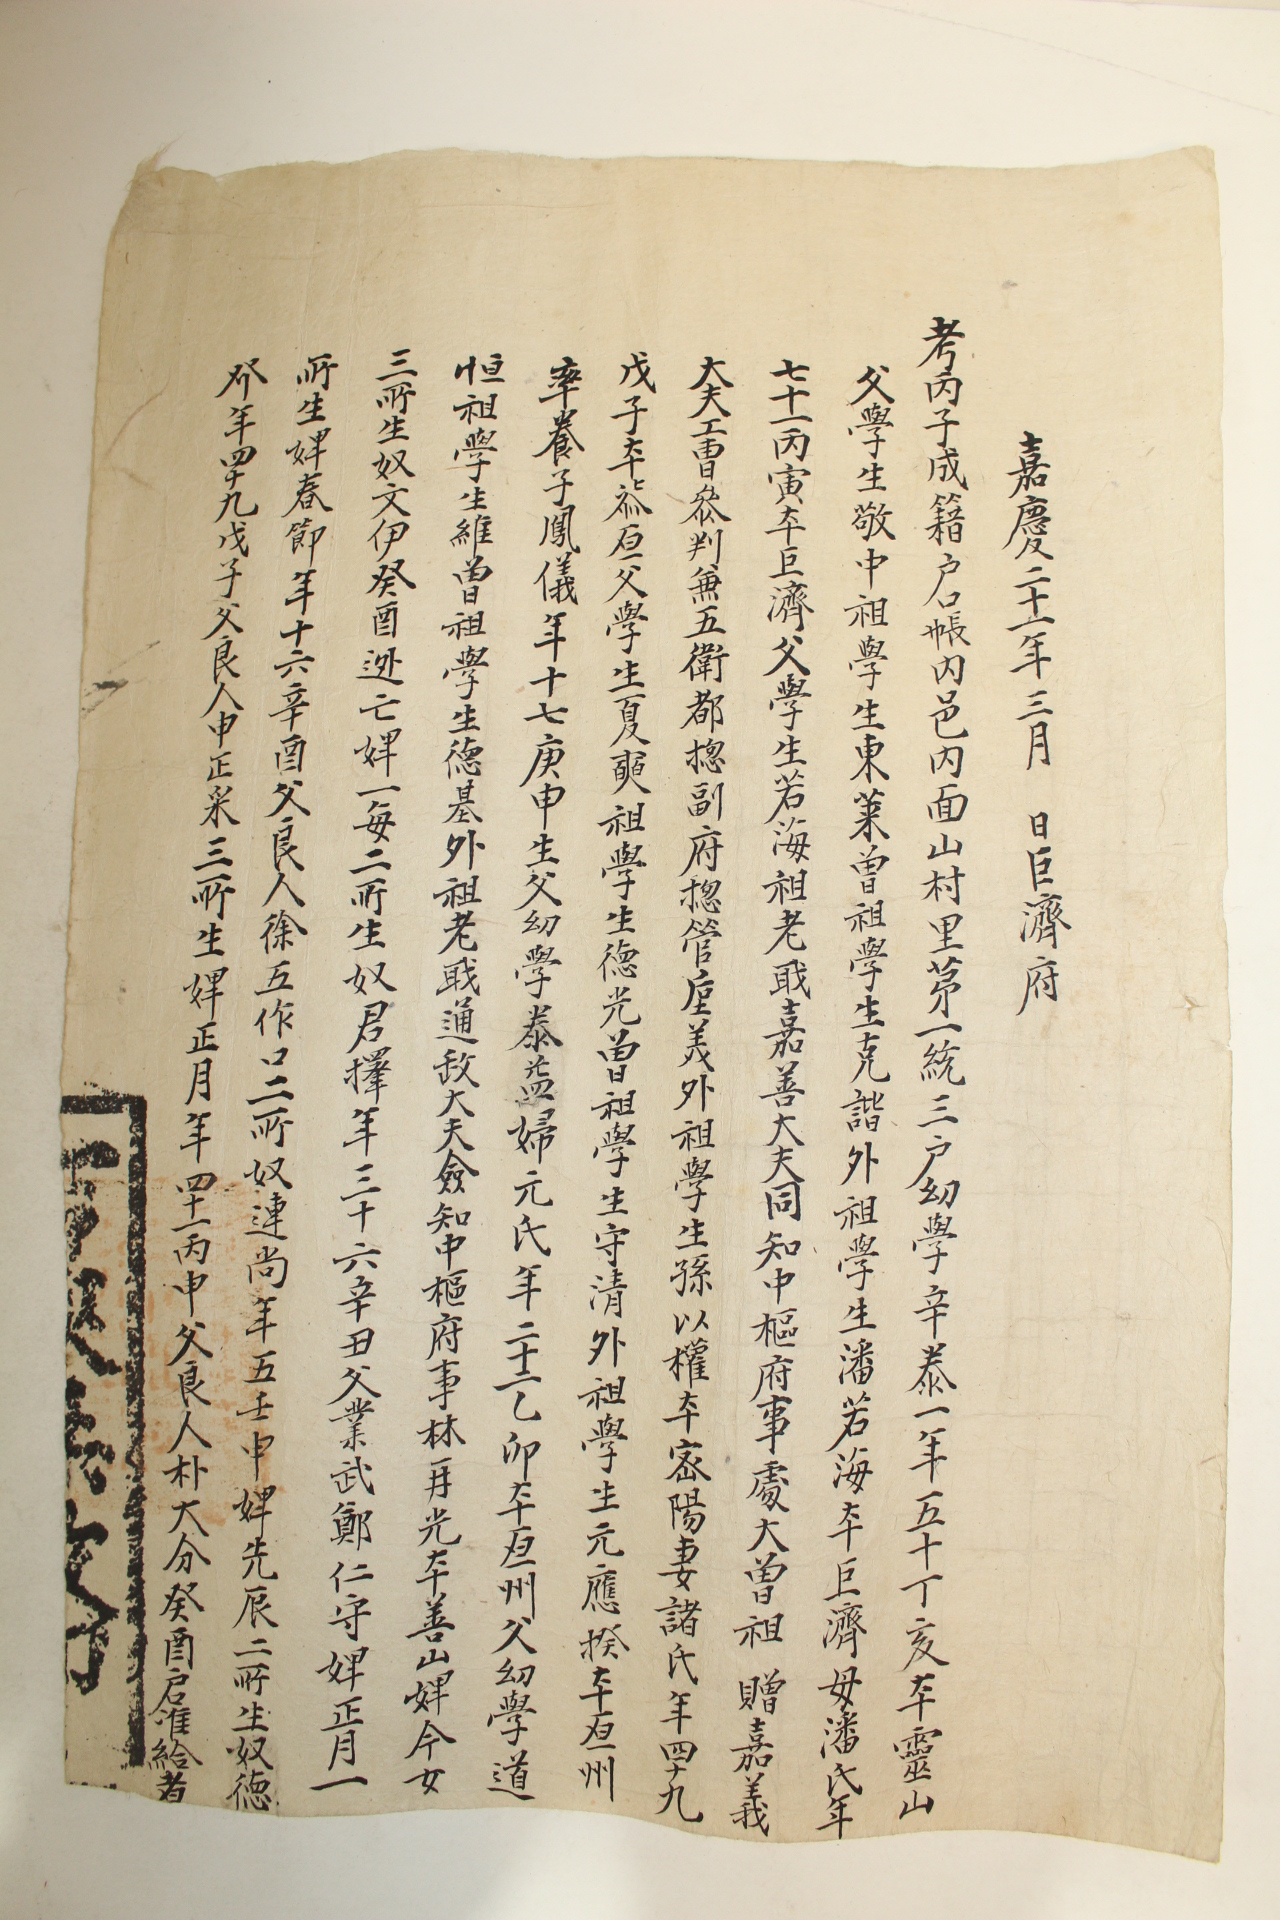 嘉慶二十一年三月 日巨濟府
考丙子成籍户口帳內邑內面山村里苐一統三户幼學辛泰一年五十丁亥本靈山
父學生敬中祖學生東萊曾祖學生克諧外祖學生潘若海本巨濟母潘氏年
七十一丙寅本巨濟父學生若海祖老職嘉善大夫同知中樞府事處大曾祖 贈嘉義
大夫工曹叅判兼五衛都揔副府揔管星美外祖學生孫以權本密陽妻諸氏年四十九
戊子本柒原父學生夏奭祖學生德光曾祖學生守清外祖學生元應揆本原州
率養子鳳儀年十七庚申生父幼學泰益婦元氏年二十二乙卯本原州父幼學道
恒祖學生維曾祖學生德基外祖老職通政大夫僉知中樞府事林再光本善山婢今女
三所生奴文伊癸酉逃亡婢一每二所生奴君擇年三十六辛丑父業武鄭仁守婢正月一
所生婢春節年十六辛酉父良人徐五作口二所奴連尚年五壬申婢先辰二所生奴德
介年四十九戊子父良人申正采三所生婢正月年四十一丙申父良人朴大分癸酉户准給者